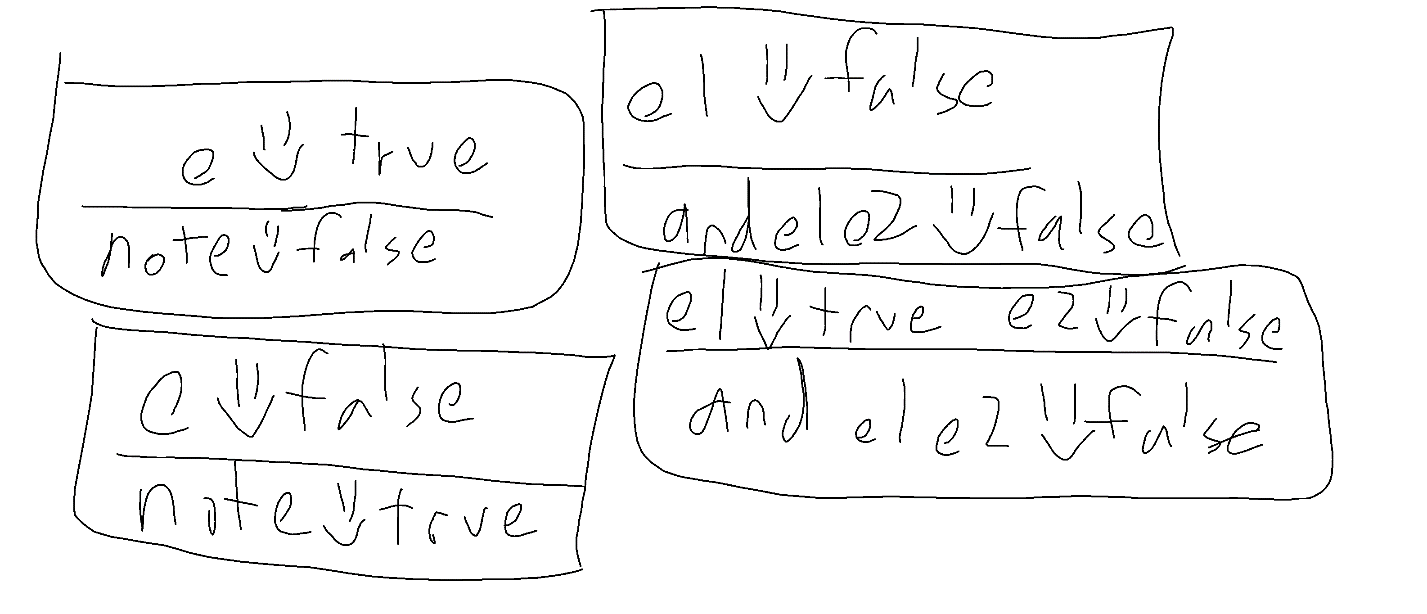 e ⇓ true
note ⇓ false
e ⇓ false
note ⇓ true
e1 ⇓ false
and e1 e2 ⇓ false
e1 ⇓ true e2 ⇓ false
and e1 e2 ⇓ false